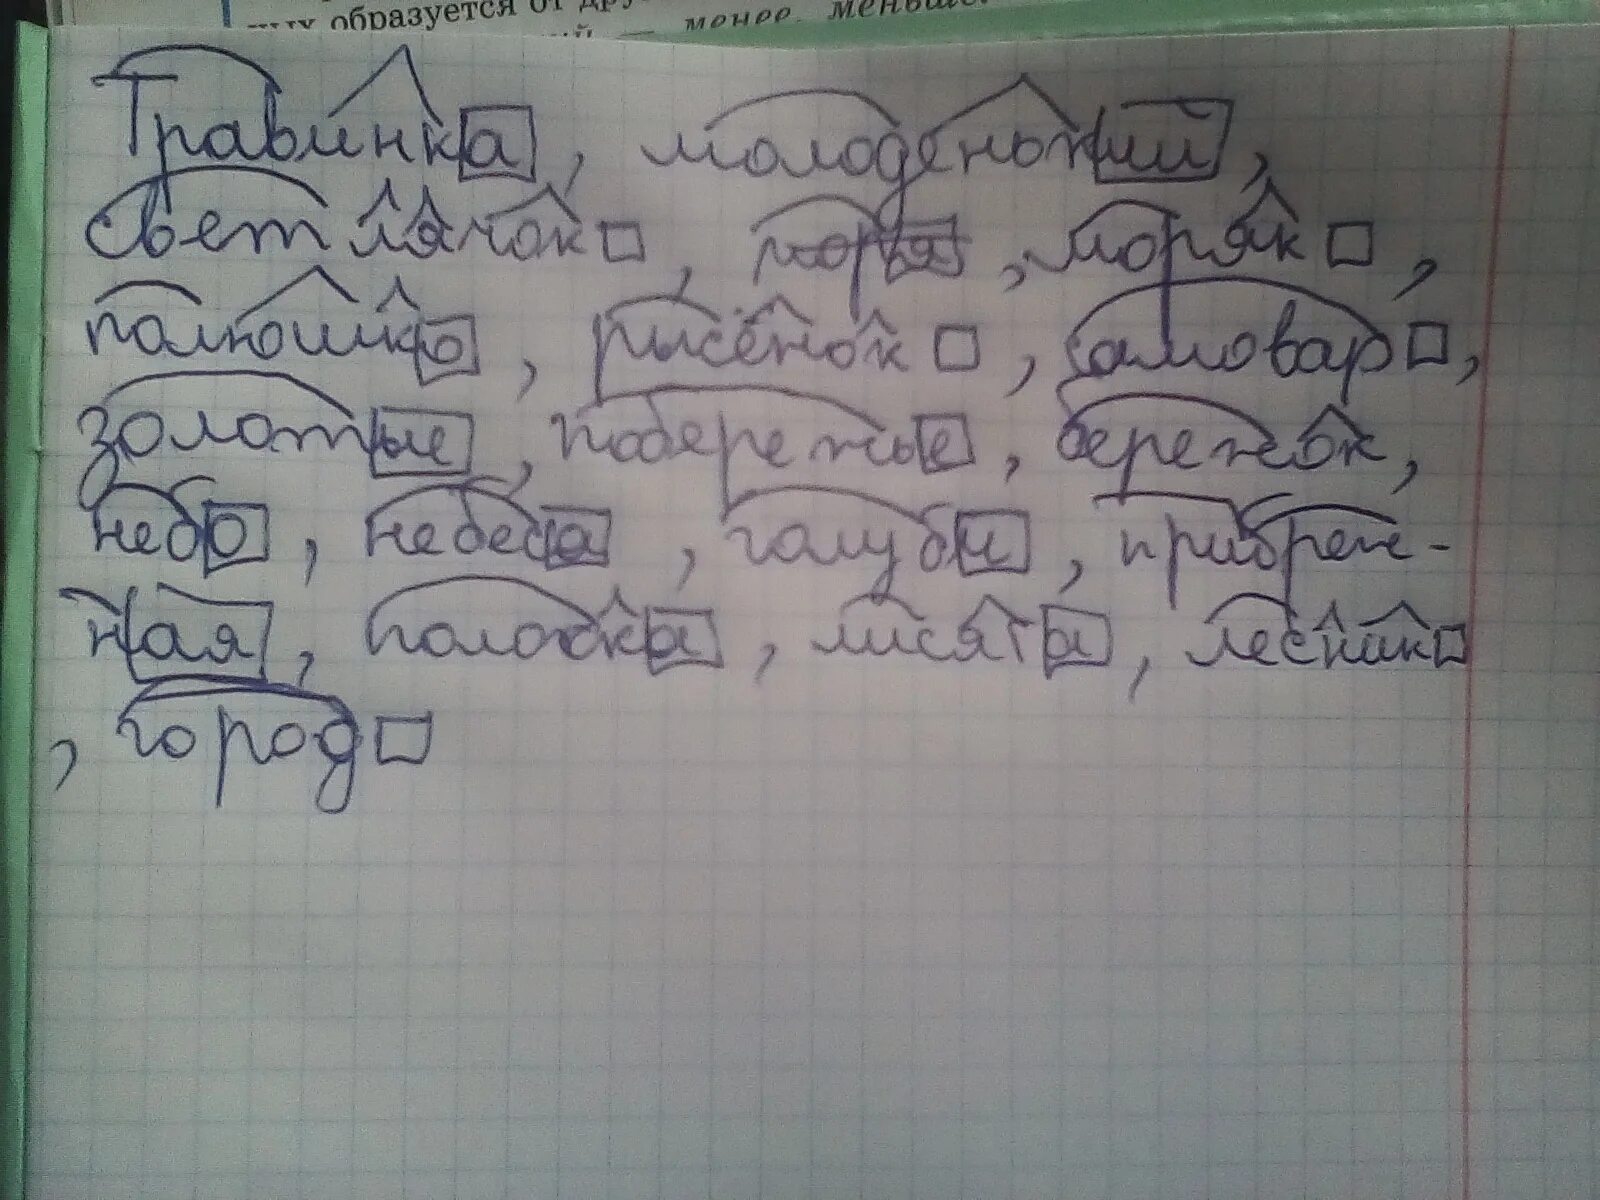 образуется от
— менее, меньше.
Травинка, молоденький,
светлячок, моря, моряк,
полюшко, рысёнок, самовар,
золотые, побережье, бережок,
небо, небеса, голуби, прибреж-
ная, полоска, лисята, лесник
, город